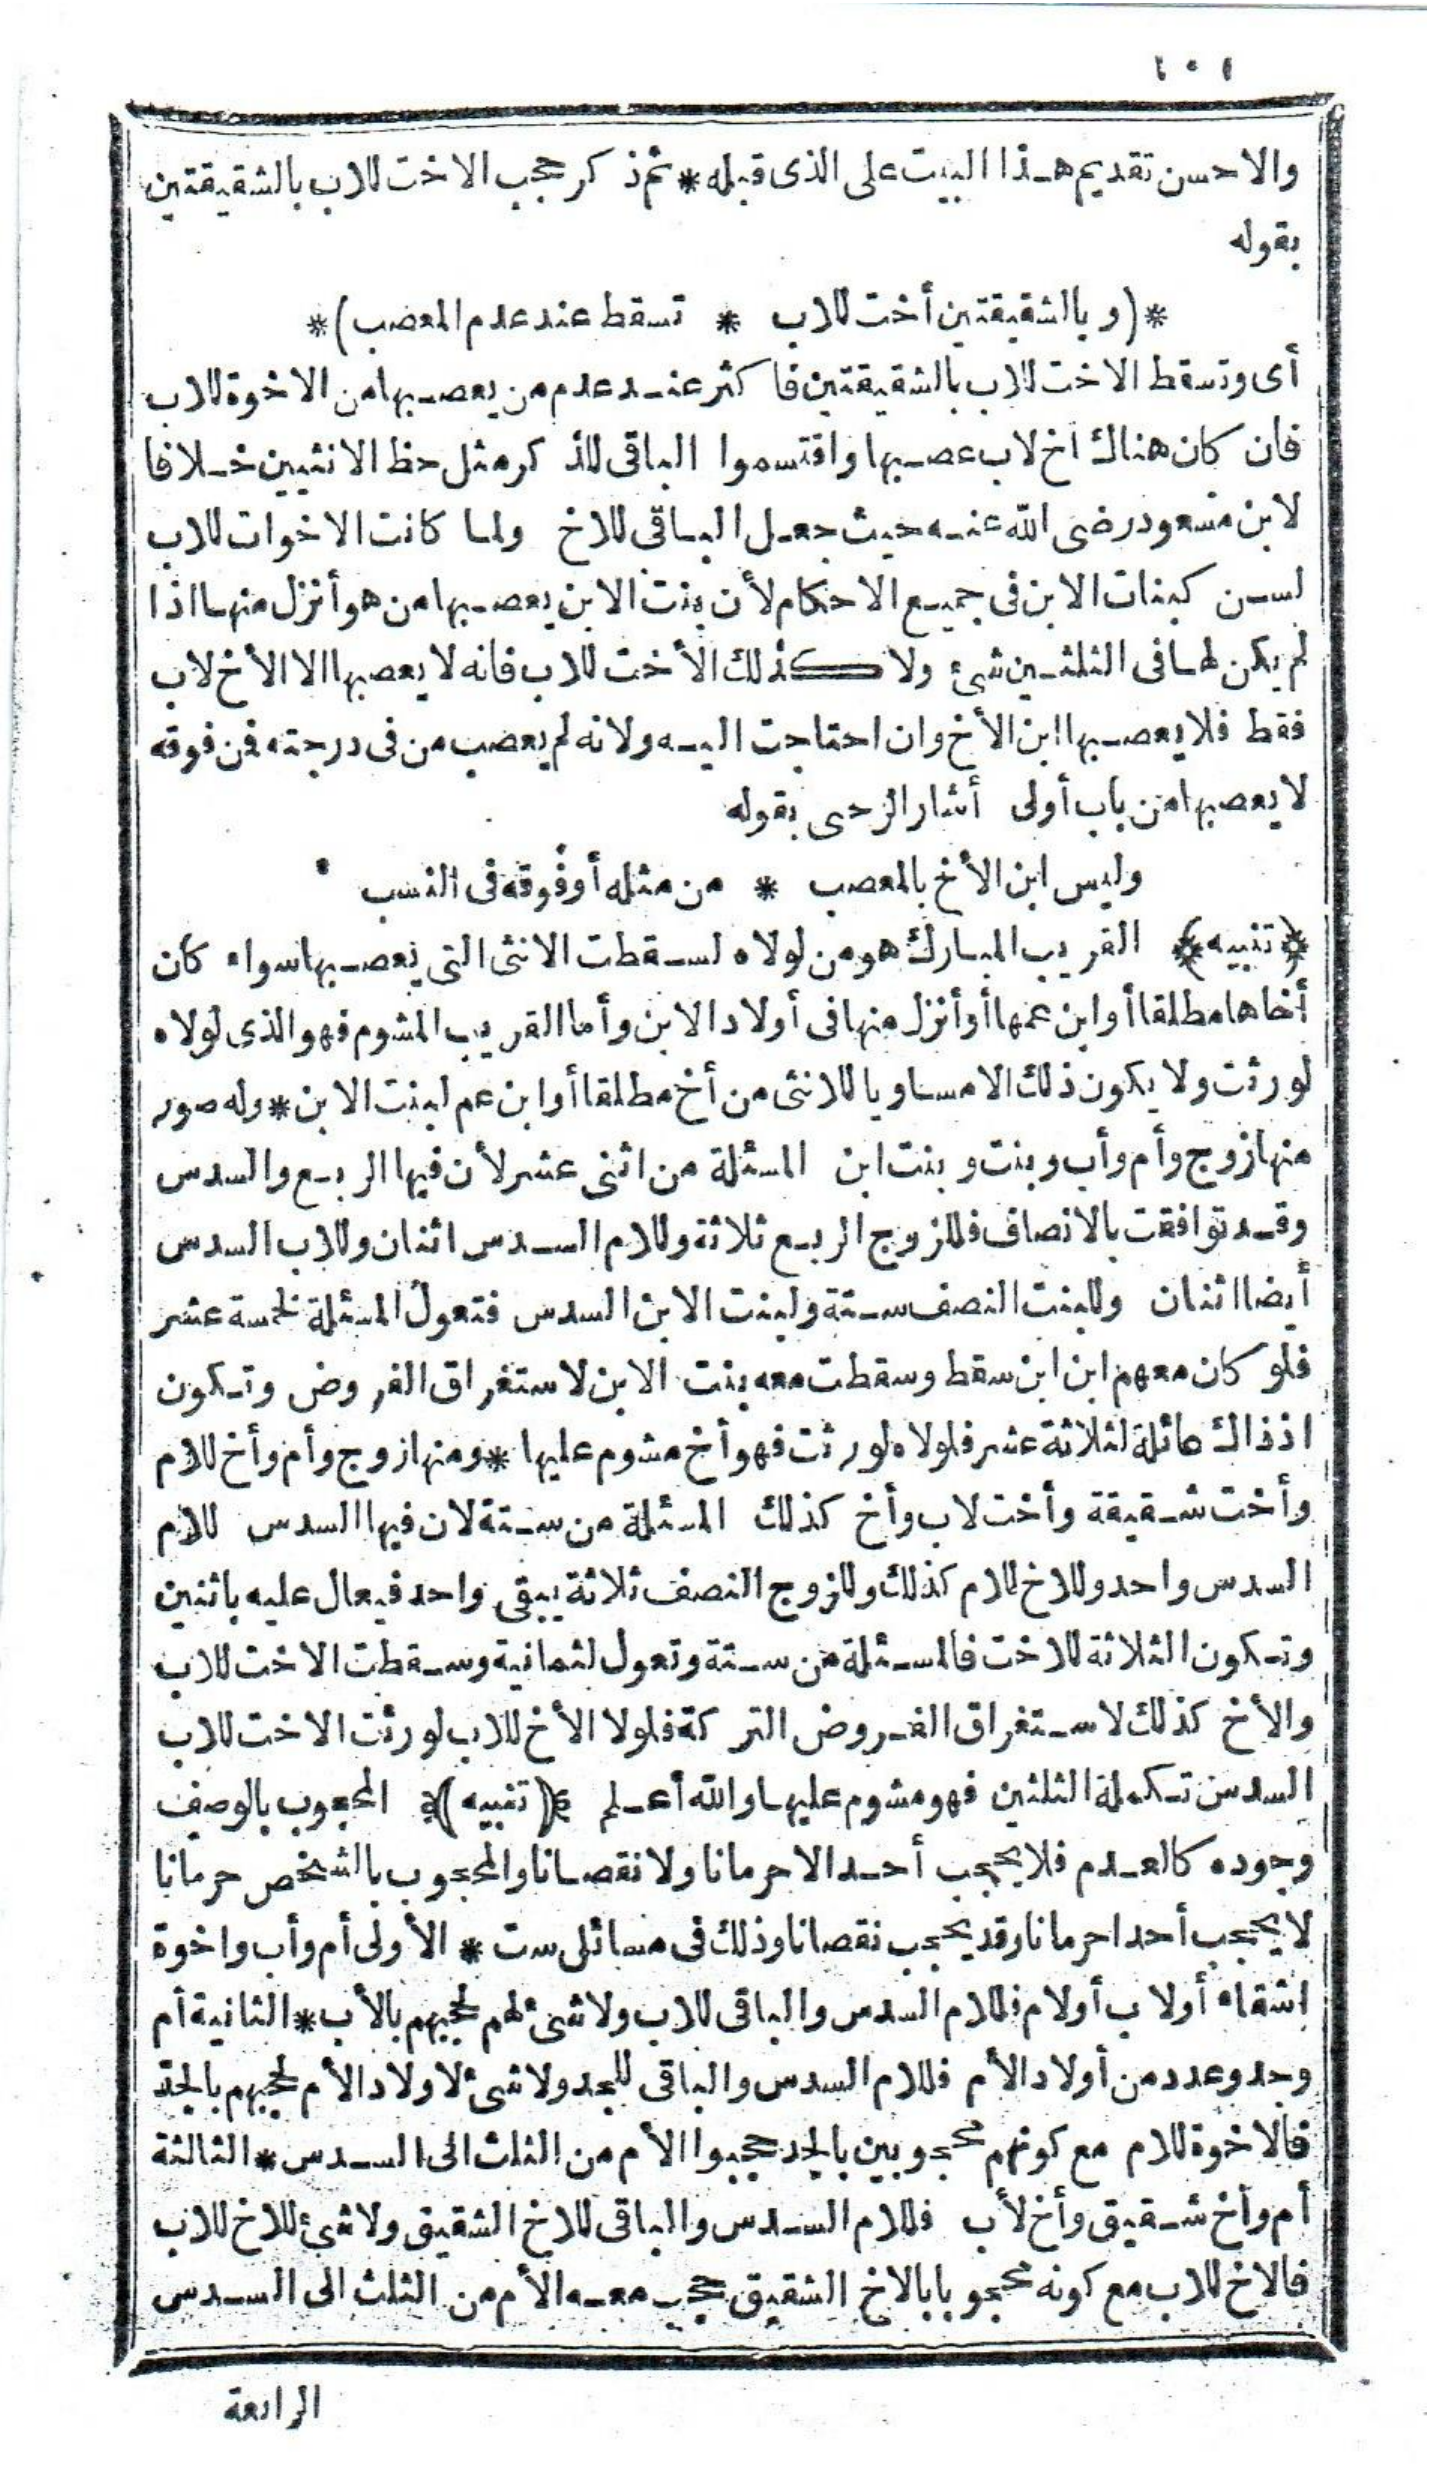 ١٠١
والاحسن تقديم هذا البيت على الذى قبله * ثم ذكر حجب الاخت للاب بالشقيقتين
بقوله
*(وبالشقيقتين أخت للاب * تسقط عند عدم المعصب)*
أى وتسقط الاخت للاب بالشقيقتين فاكثر عند عدم من يعصبها من الاخوة للاب
فان كان هناك اخ لاب عصبها واقتسموا الباقى للذكر مثل حظ الانثيين خلافا
لابن مسعود رضى الله عنه حيث جعل الباقى للاخ ولما كانت الاخوات للاب
لسن كبنات الابن فى جميع الاحكام لأن بنت الابن يعصبها من هو أنزل منها اذا
لم يكن لها فى الثلثين شئ ولا كذلك الأخت للاب فانه لا يعصبها الا الأخ لاب
فقط فلا يعصبها ابن الأخ وان احتاجت اليه ولانه لم يعصب من فى درجته فمن فوقه
لا يعصبها من باب أولى أشار الرحبى بقوله
وليس ابن الأخ بالمعصب * من مثله أو فوقه فى النسب
﴿تنبيه﴾ القريب المبارك هو من لولاه لسقطت الانثى التى يعصبها سواء كان
أخاها مطلقا أو ابن عمها أو أنزل منها فى أولاد الابن وأما القريب المشوم فهو الذى لولاه
لورثت ولا يكون ذلك الا مساويا للانثى من أخ مطلقا أو ابن عم لبنت الابن * وله صور
منها زوج وأم وأب وبنت وبنت ابن المسئلة من اثنى عشر لأن فيها الربع والسدس
وقد توافقت بالانصاف فللزوج الربع ثلاثة وللام السدس اثنان وللاب السدس
أيضا اثنان وللبنت النصف ستة ولبنت الابن السدس فتعول المسئلة لخمسة عشر
فلو كان معهم ابن ابن سقط وسقطت معه بنت الابن لاستغراق الفروض وتكون
اذ ذاك عائلة لثلاثة عشر فلولاه لورثت فهو أخ مشوم عليها * ومنها زوج وأم وأخ للام
وأخت شقيقة وأخت لاب وأخ كذلك المسئلة من ستة لان فيها السدس للام
السدس واحد وللاخ للام كذلك وللزوج النصف ثلاثة يبقى واحد فيعال عليه باثنين
وتكون الثلاثة للاخت فالمسئلة من ستة وتعول لثمانية وسقطت الاخت للاب
والأخ كذلك لاستغراق الفروض التركة فلولا الأخ للاب لورثت الاخت للاب
السدس تكملة الثلثين فهو مشوم عليها والله أعلم ﴿تنبيه﴾ المحجوب بالوصف
وجوده كالعدم فلا يحجب أحد الا حرمانا ولا نقصانا والمحجوب بالشخص حرمانا
لا يحجب أحدا حرمانا وقد يحجب نقصانا وذلك فى مسائل ست * الأولى أم وأب واخوة
اشقاء أولاب أولام فللام السدس والباقى للاب ولا شئ لهم لحجبهم بالأب * الثانية أم
وجد وعدد من أولاد الأم فللام السدس والباقى للجد ولا شئ لاولاد الأم لحجبهم بالجد
فالاخوة للام مع كونهم محجوبين بالجد حجبوا الأم من الثلث الى السدس * الثالثة
أم وأخ شقيق وأخ لأب فللام السدس والباقى للاخ الشقيق ولا شئ للاخ للاب
فالاخ للاب مع كونه محجوبا بالاخ الشقيق حجب معه الأم من الثلث الى السدس
الرابعة